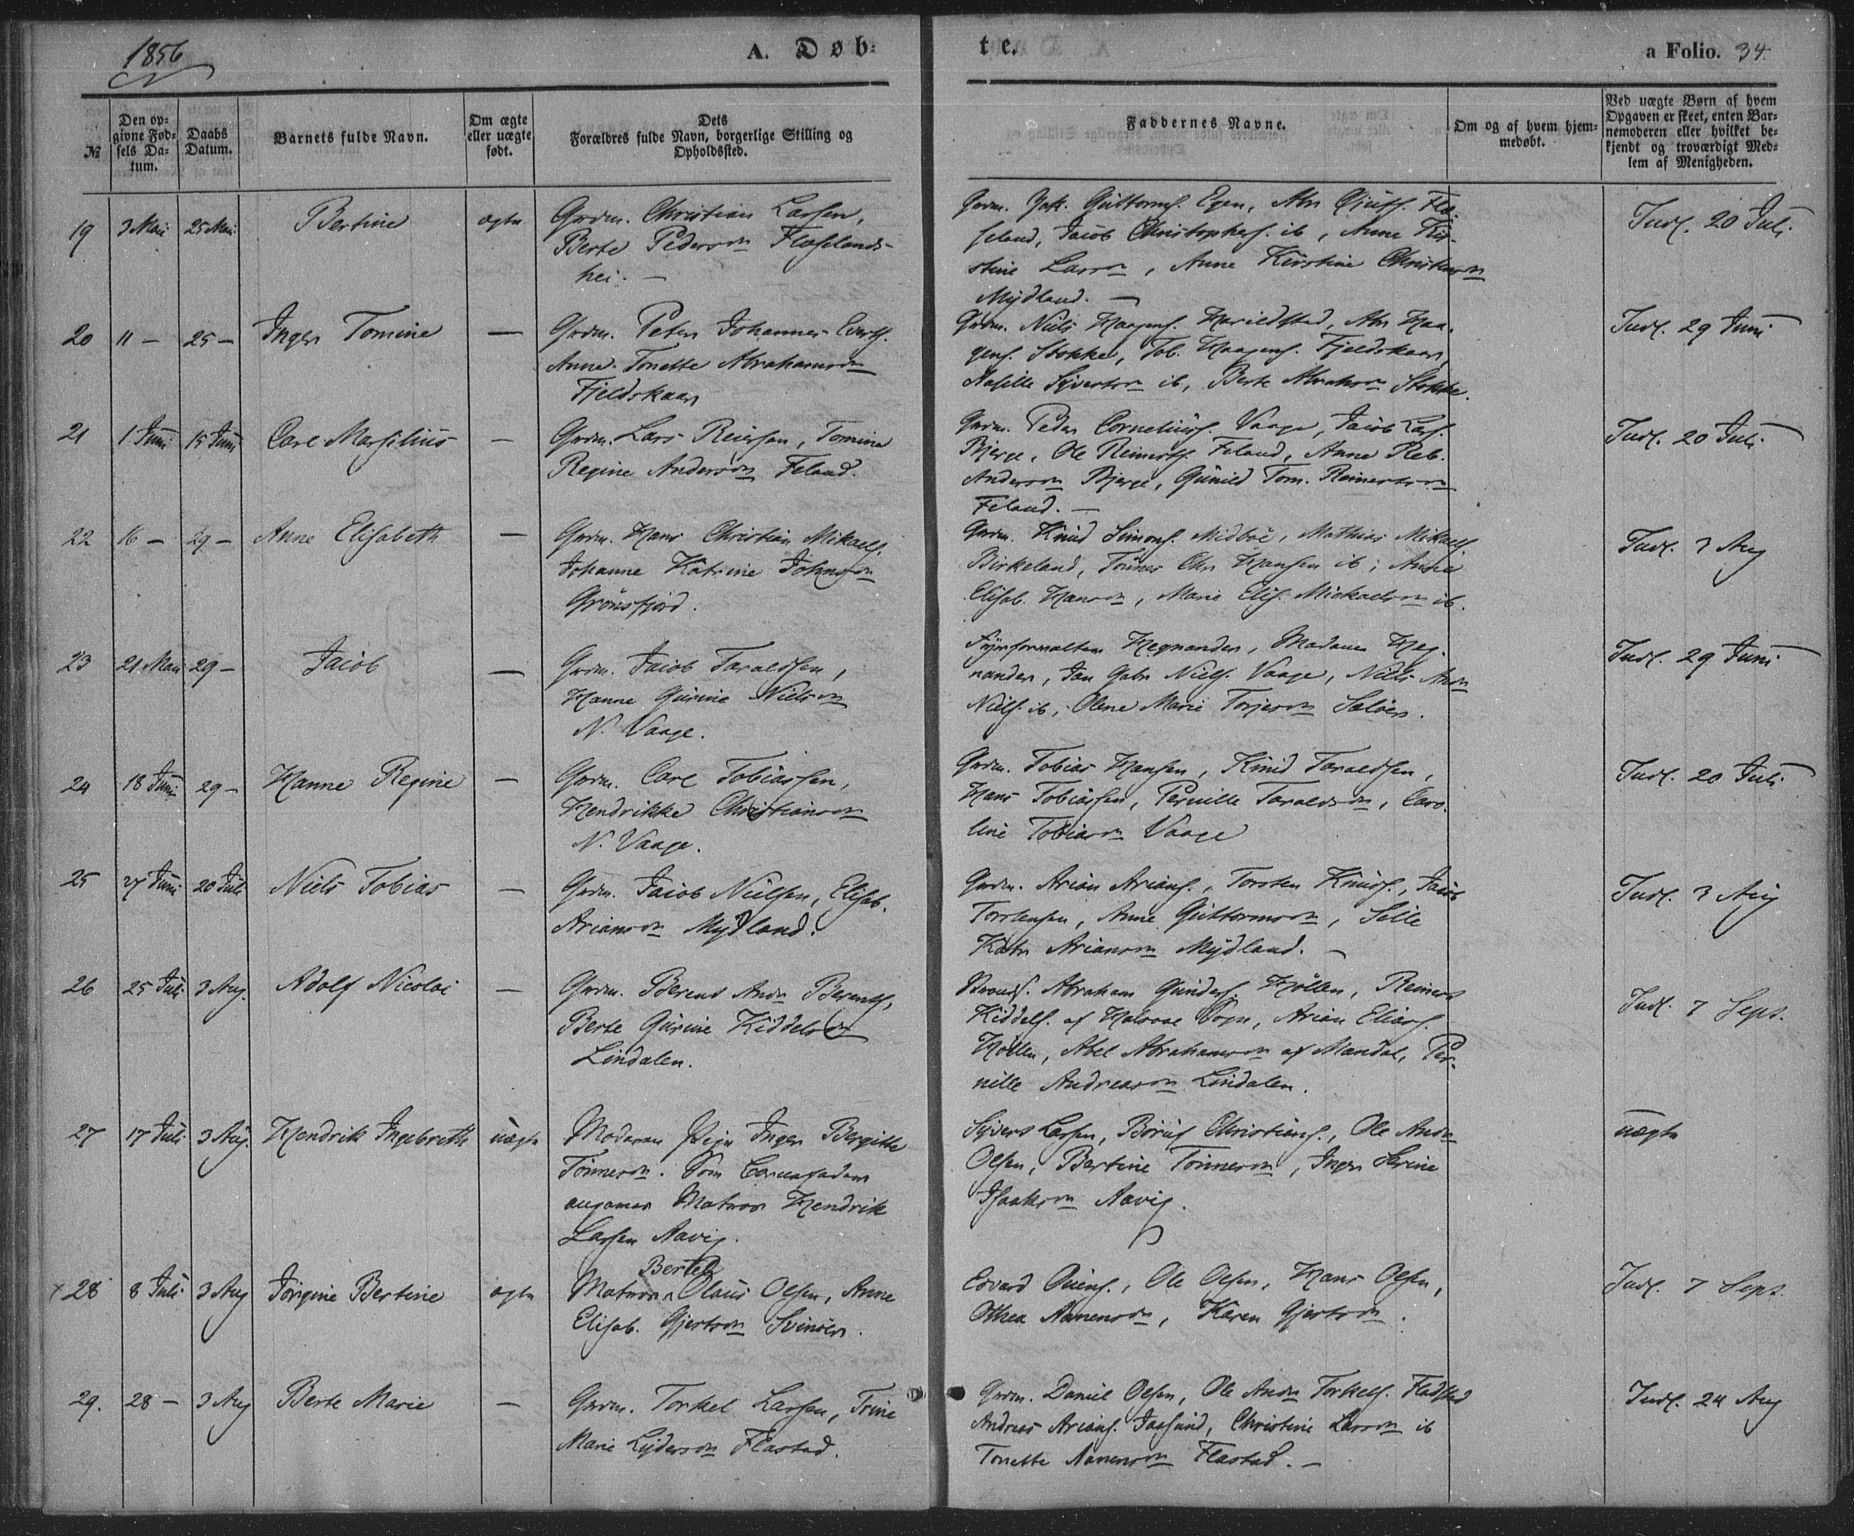 1856
A. Døb=
te.
a Folio. 34.
№
Den op-
givne Fød-
sels Da-
tum.
Daabs
Datum.
Barnets fulde Navn.
Om ægte
eller uægte
født.
Dets
Forældres fulde Navn, borgerlige Stilling og
Opholdssted.
Faddernes Navne.
Om og af hvem hjem-
medøbt.
Ved uægte Børn af hvem
Opgaven er skeet, enten Bar-
nemoderen eller hvilket be-
kjendt og troværdigt Med-
lem af Menigheden.
19 3 Mai 25 Mai Bertine ægte
Grdm. Christian Larsen,
Berte Pedersdn
hei. —
Grdm. Guttorms. Egen,
Jacob Christophers. ib, Anne Kir-
stine Larsdn, Anne Kirstine
Mydland. —
Indl. 20 Juli
20 11 — 25 — Inger Tomine —
Grdm. Peter Johannes
Anne Tonette Abrahamsdn
Fjeldskaar
Grdm. Niels Haagens. Harildstad, Abr Haa-
gens. Stokke, Tob. Haagens. Fjeldskaar,
Sijvertsdn ib, Berte Abrahsdn Stokke.
Indl. 29 Juni
21 1 Juni 15 Juni Carl Marsilius —
Grdm. Lars Reiersen, Tomine
Regine Andersdn Feland.
Grdm. Peder Corneliüs. Vaage, Jacob Lars.
Bjerge, Ole Reinerts. Feland, Anne Reb.
Andersdn Bjerge, Günild Tom. Reinertsdn
Feland. —
Indl. 20 Juli
22 16 — 29 — Anne Elisabeth —
Grdm. Hans Christian Mikaels.
Johanne Katrine Johnsdn
Grönsfjord.
Grdm. Knüd Simons. Midböe, Mathias Mikaels.
Birkeland, Tönnes Chr Hansen ib, Anne
Elisab. Hansdn, Marie Elis. Mickaelsdn ib.
Indl. 3 Aug
23 21 Mai 29 — Jacob —
Grdm. Jacob Taraldsen,
Hanne Gürine Nielsdn
N. Vaage.
Fyrforvalter Hegnander, Madame Heg-
nander, Jan Gabr Niels. Vaage, Niels Andr
Niels. ib, Olene Marie Torjesdn Salöen.
Indl. 29 Juni
24 18 Juni 29 — Hanne Regine —
Grdm. Carl Tobiassen,
Hendrikke Christiansdn
N. Vaage.
Grdm. Tobias Hansen, Knüd Taraldsen,
Hans Tobiassen, Pernille Taraldsdn, Caro-
line Tobiasdn Vaage
Indl. 20 Juli
25 27 Juni 20 Juli Niels Tobias —
Grdm. Jacob Nielsen, Elisab.
Ariansdn Mydland.
Grdm. Arian Arians., Torsten Knüds., Jacob
Torstensen, Anne Guttormsdn, Sille
Katr Ariansdn Mydland. —
Indl. 3 Aug
26 25 Juli 3 Aug. Adolf Nicolai —
Grdm. Berent Andr Berents,
Berte Gürine Kiddelsdn
Lindalen.
Abraham Gunders. Höllen, Reinert
Kiddels. af Halsaae Sogn, Arian Elias.
Höllen, Abel Abrahamsdn af Mandal, Per-
nille Andreasdn Lindalen.
Indl. 7 Sept.
27 17 Juli 3 Aug. Hendrik Ingebreth uægte
Moderen Pige Inger Bergitte
Tönnesdn. Som Barnefader
angives Matros Hendrik
Larsen Aavig.
Sijvert Larsen, Börüf Christians., Ole Andr
Olsen, Bertine Tönnesdn, Inger Serine
Isaaksdn Aavig.
uægte
28 8 Juli 3 Aug Jörgine Bertine ægte
Bertel
Matros Olaus Olsen, Anne
Elisab. Gjertsdn Svinöer.
Edvard Ouens., Ole Olsen, Hans Olsen,
Othea Aanensdn, Karen Gjertsdn.
Indl. 7 Sept.
29. 28 — 3 Aug Berte Marie —
Grdm. Torkel Larsen, Trine
Marie Lydersdn Flastad.
Grdm. Daniel Olsen, Ole Andr Torkels. Fladstad
Andreas Arians. Jaasünd, Christine Larsdn ib
Tonette Aanensdn Flastad. —
Indl. 24 Aug